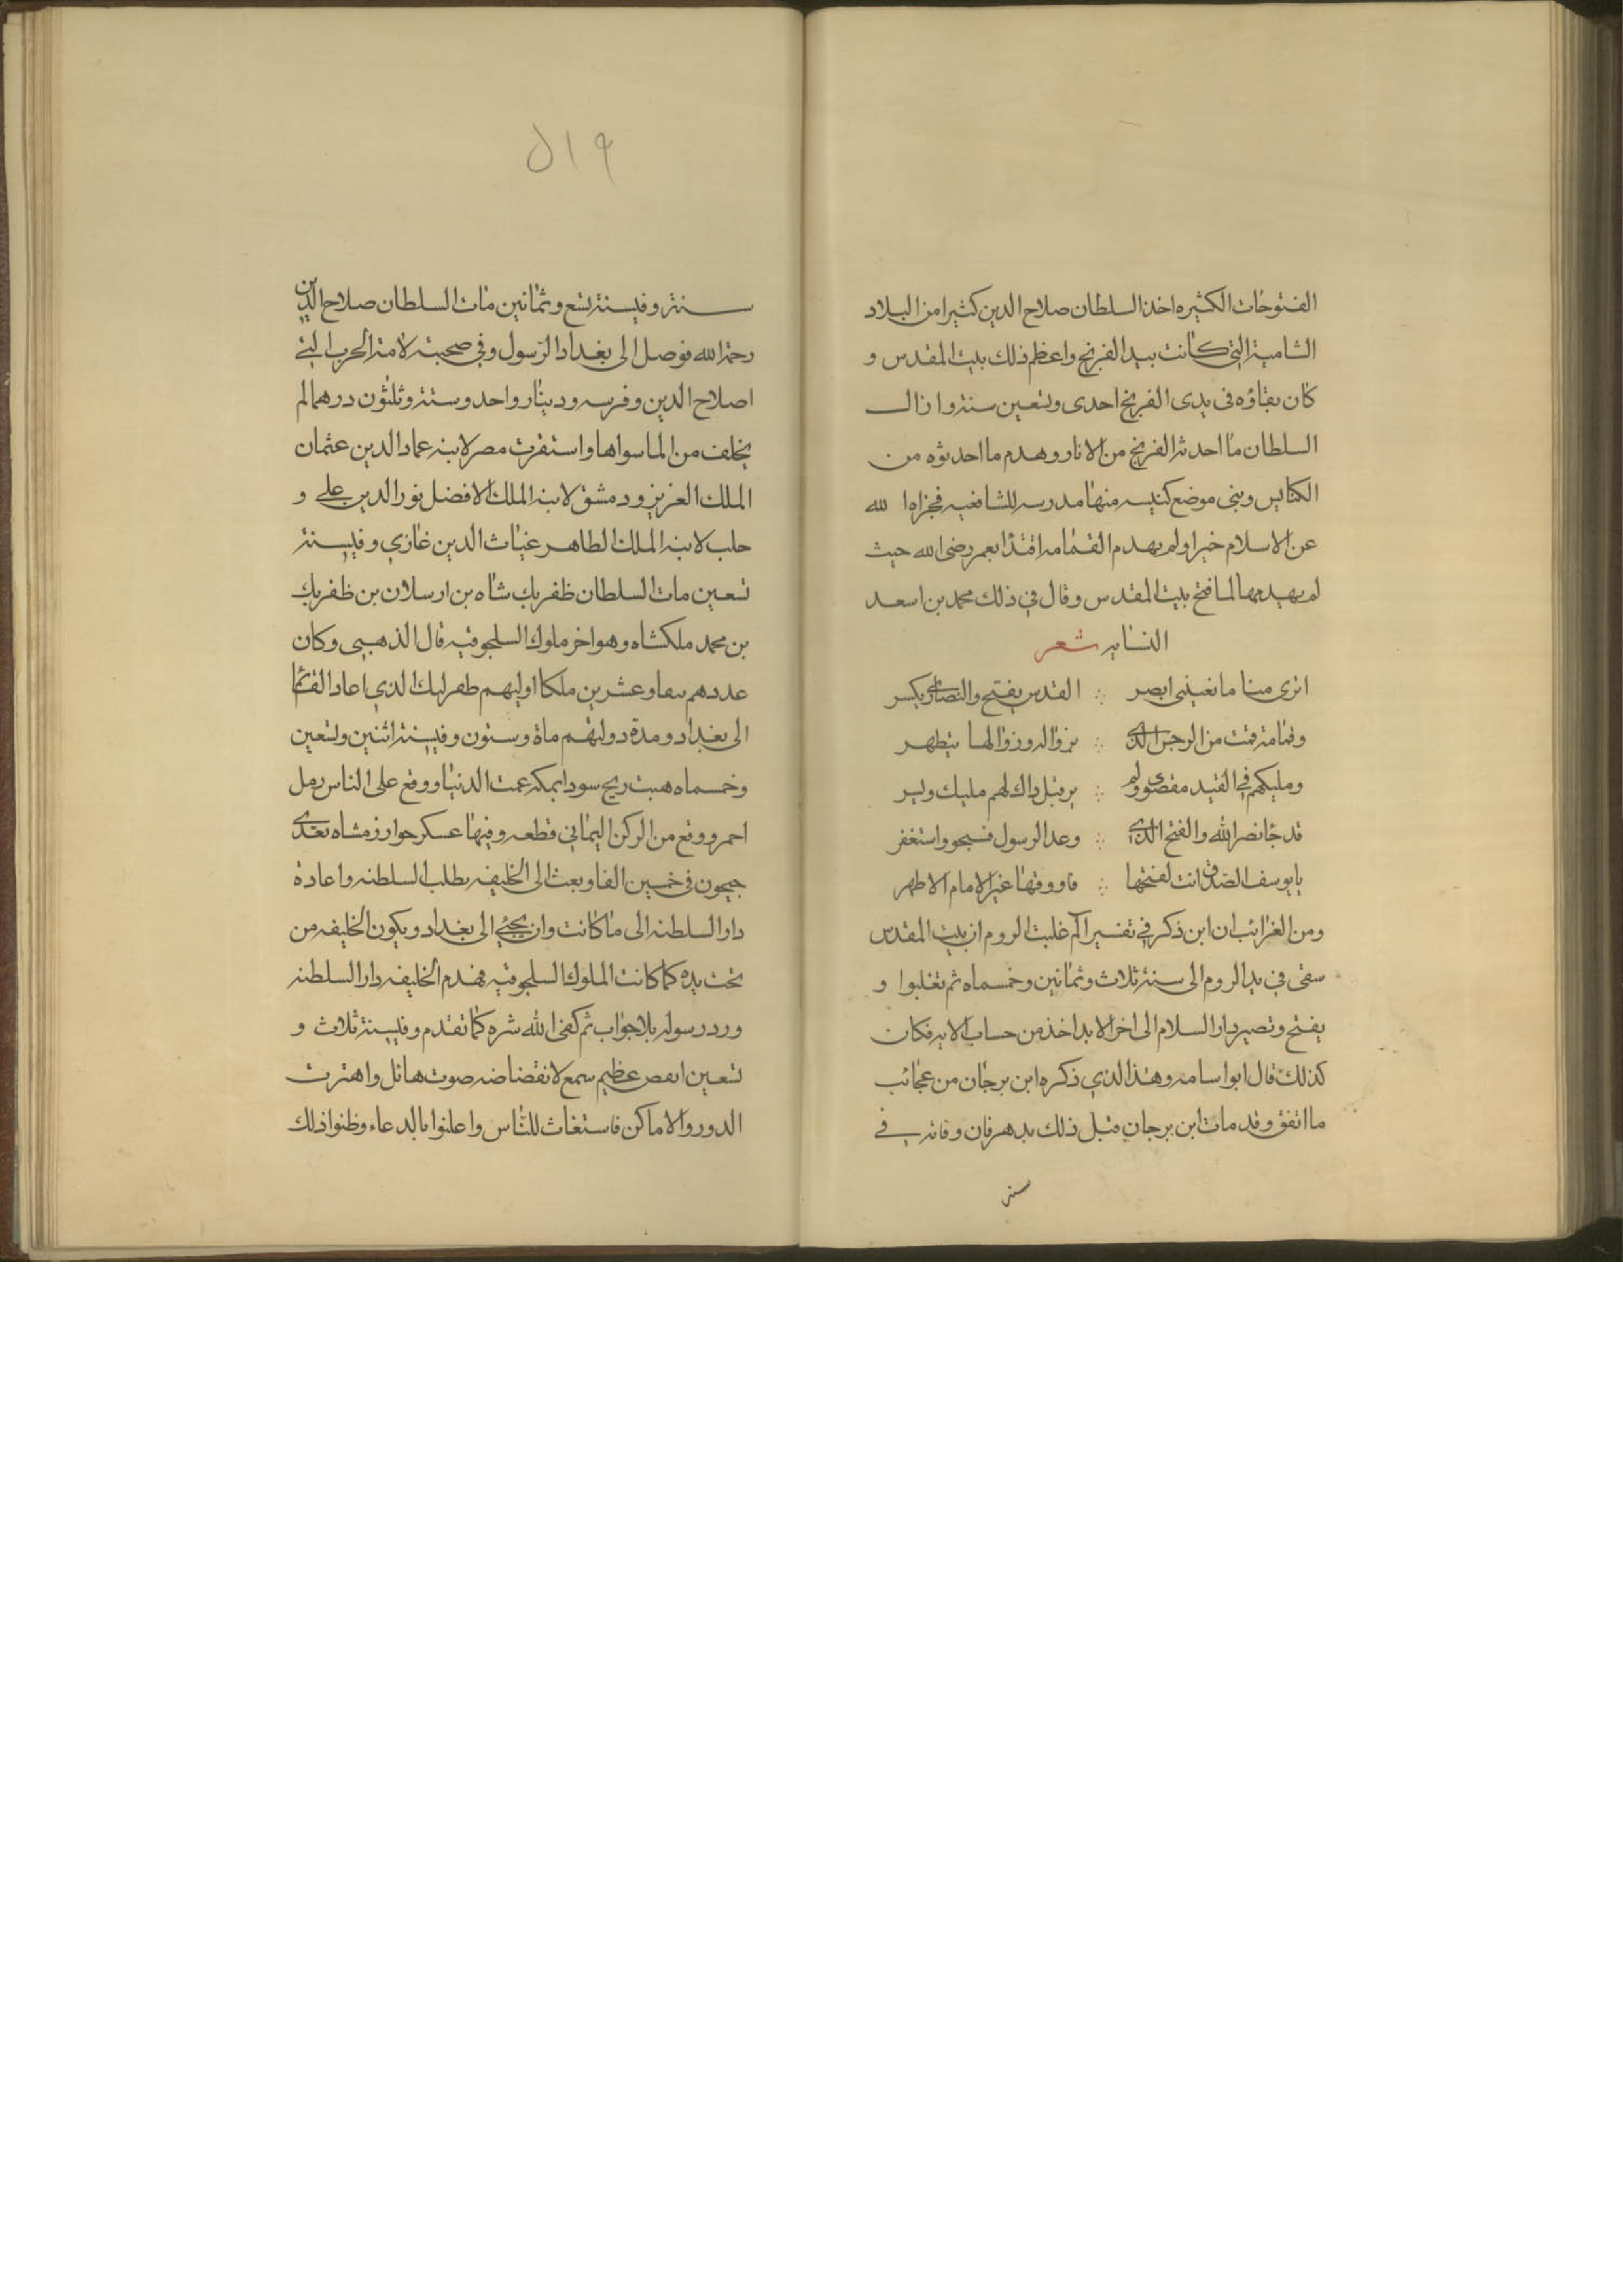 الفتوحات الكثيره اخذ السلطان صلاح الدين كثيرا من البلاد
الشامية التي كانت بيد الفرنج واعظم ذلك بيت المقدس و
كان بقاؤه في يدى الفرنج احدى وتسعين سنة وازال
السلطان ما احدثه الفرنج من الاثار وهدم ما احدثوه من
الكنايس وبنى موضع كنيسه منها مدرسه للشافعيه فجزاه الله
عن الاسلام خيرا ولم يهدم القمامه اقتدا بعمر رضى الله حيث
لم يهدمها لما فتح بيت المقدس وقال في ذلك محمد بن اسعد
النسابه شعر
اترى مناما ما بعينى ابصر ∴ القدس يفتح والنصارى يكسر
وقمامة قمت من الرجس الذي ∴ بزواله وزوالها يتطهر
ومليكهم في القيد مقصور ولم ∴ ير قبل ذاك لهم مليك
قد جا نصر الله والفتح الذي ∴ وعد الرسول فسبحو واستغفر
يا يوسف الصديق انت لفتحها ∴ الامام الاطهر
ومن الغرائب ان ابن ذكر في تفسير الم غلبت الروم ان بيت المقدس
سقى في يد الروم الى سنة ثلاث وثمانين وخمسماه ثم تغلبوا و
يفتح وتصير دار السلام الى اخر الابد اخذ من حساب الايه فكان
كذلك قال ابوا سامه وهذا الذي ذكره ابن برجان من عجائب
ما اتفق وقد مات ابن برجان قبل ذلك بدهر فان وفاته في
سنه
٥١٩
سنة وفي سنة تسع وثمانين مات السلطان صلاح الدين
رحمة الله فوصل الى بغداد الرسول وفي صحبته لامة الحرب التي
اصلاح الدين وفرسه ودينار واحد وستة وثلثون درهما لم
يخلف من المال سواها واستقرت مصر لابنه عماد الدين عثمان
الملك العزيز ودمشق لابنه الملك الافضل نور الدين علي و
حلب لابنه الملك الظاهر غياث الدين غازي وفي سنة
تسعين مات السلطان ظفربك شاه بن ارسلان بن ظفربك
بن محمد ملكشاه وهو اخر ملوك السلجوقيه قال الذهبي وكان
عددهم نيفا وعشرين ملكا اولهم طغرلبك الذي اعاد القائم
الى بغداد ومدة دولتهم ماة وستون وفي سنة اثنين وتسعين
وخمسماه هبت ريح سودا بمكه عمت الدنيا ووقع على الناس رمل
احمر ووقع من الركن اليماني قطعه وفيها عسكر خوارزمشاه تعدى
جيحون في خمسين الفا وبعث الى الخليفه يطلب السلطنه واعادة
دار السلطنه الى ما كانت وان يجئي الى بغداد ويكون الخليفه من
تحت يده كما كانت الملوك السلجوقيه فهدم الخليفه دار السلطنه
ورد رسوله بلا جواب ثم كفى الله شره كما تقدم وفي سنة ثلاث و
تسعين انقض عظيم سمع لانقضاضه صوت هائل واهتزت
الدور والاماكن فاستغاث للناس واعلنوا بالدعاء وظنوا ذلك